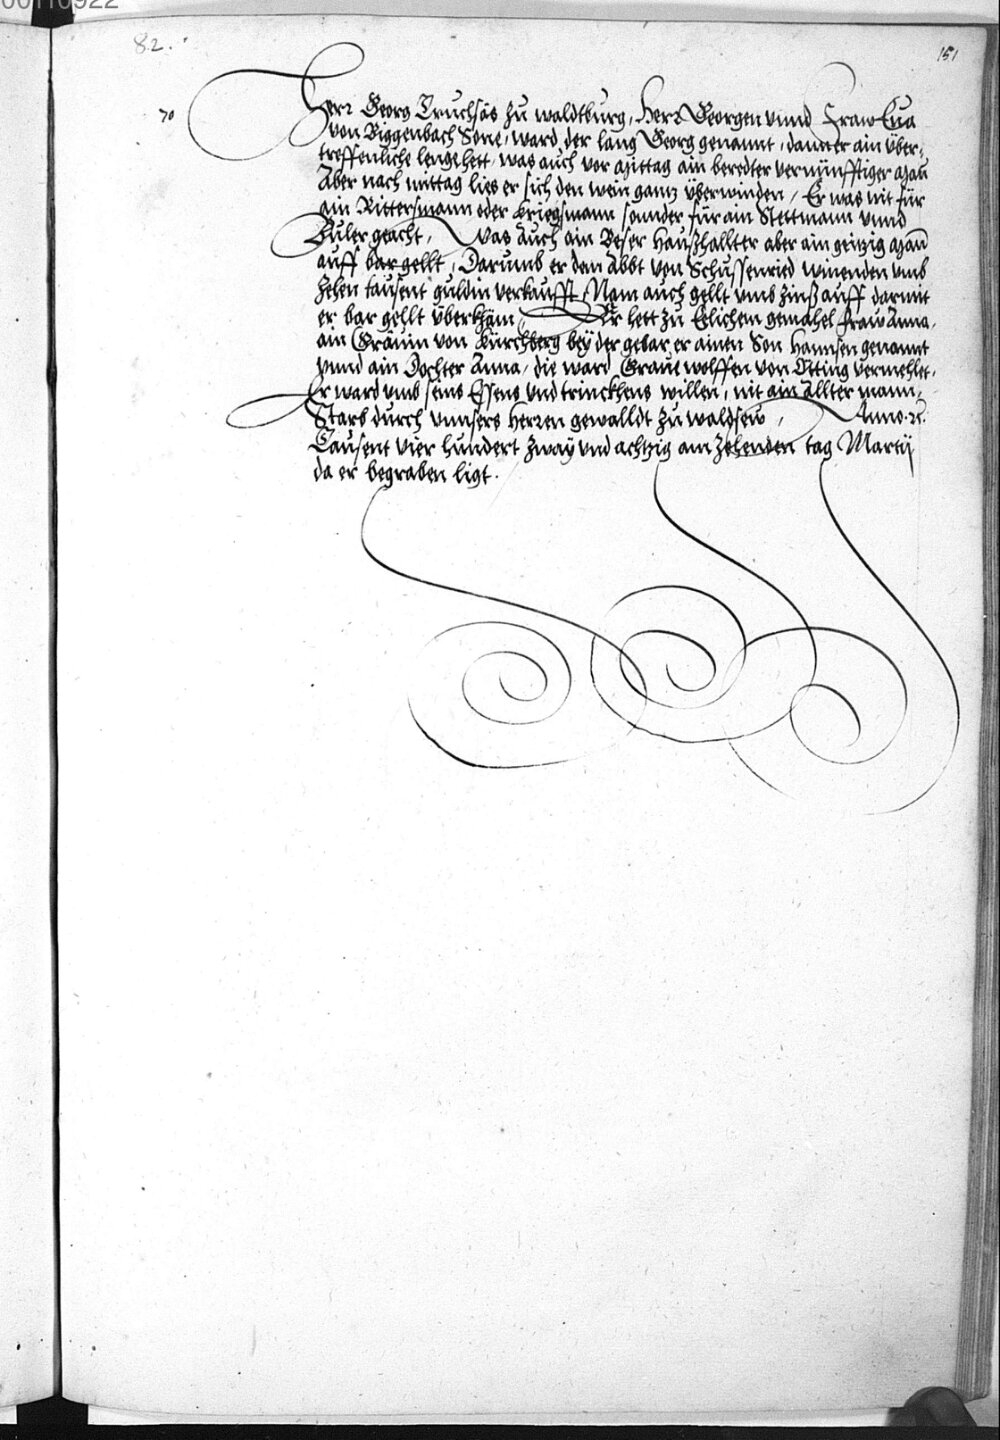 00110922
82.
151
70
Herr Georg Truchsäs zu waldtburg, Herr Georgen vnnd Fraw Eua
von Biggenbach Sone, ward der lang Georg genannt, dann er ain über-
treffenliche lenge hett, was auch vor Mittag ain beredter vernünfftiger Man
Aber nach mittag lies er sich den wein gantz überwinden, Er was nit für
ein Rittersmann oder kriegsmann sonnder für ain Stettmann vnnd
Buler geacht, was auch ain Beser Haußhallter aber ain geitzig Man
auff bar gellt, Darumb er dem Abbt von Schussenried winenden vmb
zehen tausent guldin verkaufft, Nam auch gellt vmb zinß auff darmit
er bar gellt überkham, Er hett zu Eelichem gemahel fraw Anna,
ain Gräuin von Kirchberg bey der gebar er ainen Son Hannsen genannt
vnnd ain Dochter Anna, die ward Graue wolffen von Otting vermehlet,
Er ward vmb seins Essens vnd trinckhens willen, nit ain Allter mann,
Starb durch vnnsers Herren gewalldt zu waldsew, Anno
Tausent vier hundert zway vnd achtzig am zehenden tag Martij
da er begraben ligt.